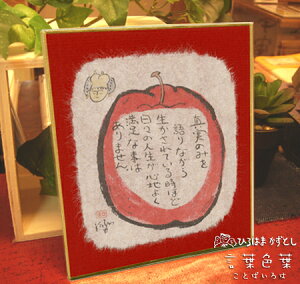 真実のみを
語りながら
生かされている時ほど
日々の人生が心地よく
満足な事は
ありません
ひろはまかずとし
言葉色葉
ことばいろは